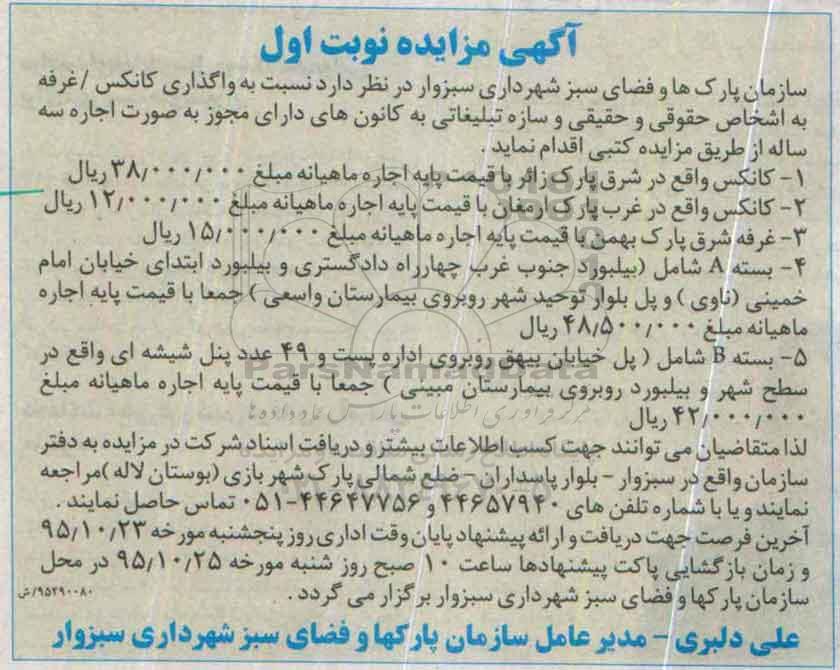 آگهی مزایده نوبت اول
سازمان پارک ها و فضای سبز شهرداری سبزوار در نظر دارد نسبت به واگذاری کانکس /غرفه
به اشخاص حقوقی و حقیقی و سازه تبلیغاتی به کانون های دارای مجوز به صورت اجاره سه
ساله از طریق مزایده کتبی اقدام نماید .
۱- کانکس واقع در شرق پارک زائر با قیمت پایه اجاره ماهیانه مبلغ ۳۸/۰۰۰/۰۰۰ ریال
۲- کانکس واقع در غرب پارک ارمغان با قیمت پایه اجاره ماهیانه مبلغ ۱۲/۰۰۰/۰۰۰ ریال
۳- غرفه شرق پارک بهمن با قیمت پایه اجاره ماهیانه مبلغ ۱۵/۰۰۰/۰۰۰ ریال
۴- بسته A شامل (بیلبورد جنوب غرب چهارراه دادگستری و بیلبورد ابتدای خیابان امام
خمینی (ناوی ) و پل بلوار توحید شهر روبروی بیمارستان واسعی ) جمعا با قیمت پایه اجاره
ماهیانه مبلغ ۴۸/۵۰۰/۰۰۰ ریال
۵- بسته B شامل ( پل خیابان بیهق روبروی اداره پست و ۴۹ عدد پنل شیشه ای واقع در
ParsNamadData
سطح شهر و بیلبورد روبروی بیمارستان مبینی ) جمعا با قیمت پایه اجاره ماهیانه مبلغ
مرکز فرآوری اطلاعات پارس نماد داده ها
۴۲/۰۰۰/۰۰۰ ریال
لذا متقاضیان می توانند جهت کسب اطلاعات بیشتر و دریافت اسناد شرکت در مزایده به دفتر
سازمان واقع در سبزوار - بلوار پاسداران - ضلع شمالی پارک شهر بازی (بوستان لاله )مراجعه
نمایند و یا با شماره تلفن های ۴۴۶۵۷۹۴۰ و ۴۴۶۴۷۷۵۶-۰۵۱ تماس حاصل نمایند .
آخرین فرصت جهت دریافت و ارائه پیشنهاد پایان وقت اداری روز پنجشنبه مورخه ۹۵/۱۰/۲۳
و زمان بازگشایی پاکت پیشنهادها ساعت ۱۰ صبح روز شنبه مورخه ۹۵/۱۰/۲۵ در محل
سازمان پارکها و فضای سبز شهرداری سبزوار برگزار می گردد .
۹۵۲۹۰۰۸۰/ش
علی دلبری - مدیر عامل سازمان پارکها و فضای سبز شهرداری سبزوار